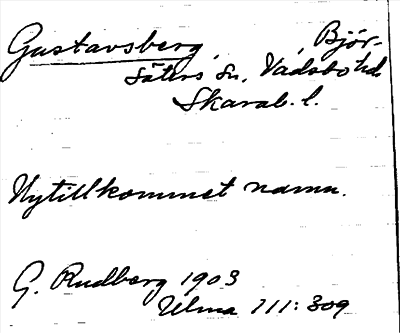 Gustavsberg, , Björ-
säters sn, Vadsbo hd
Skarab. l.
Nytillkommet namn.
G. Rudberg 1903
Ulma 111: 309